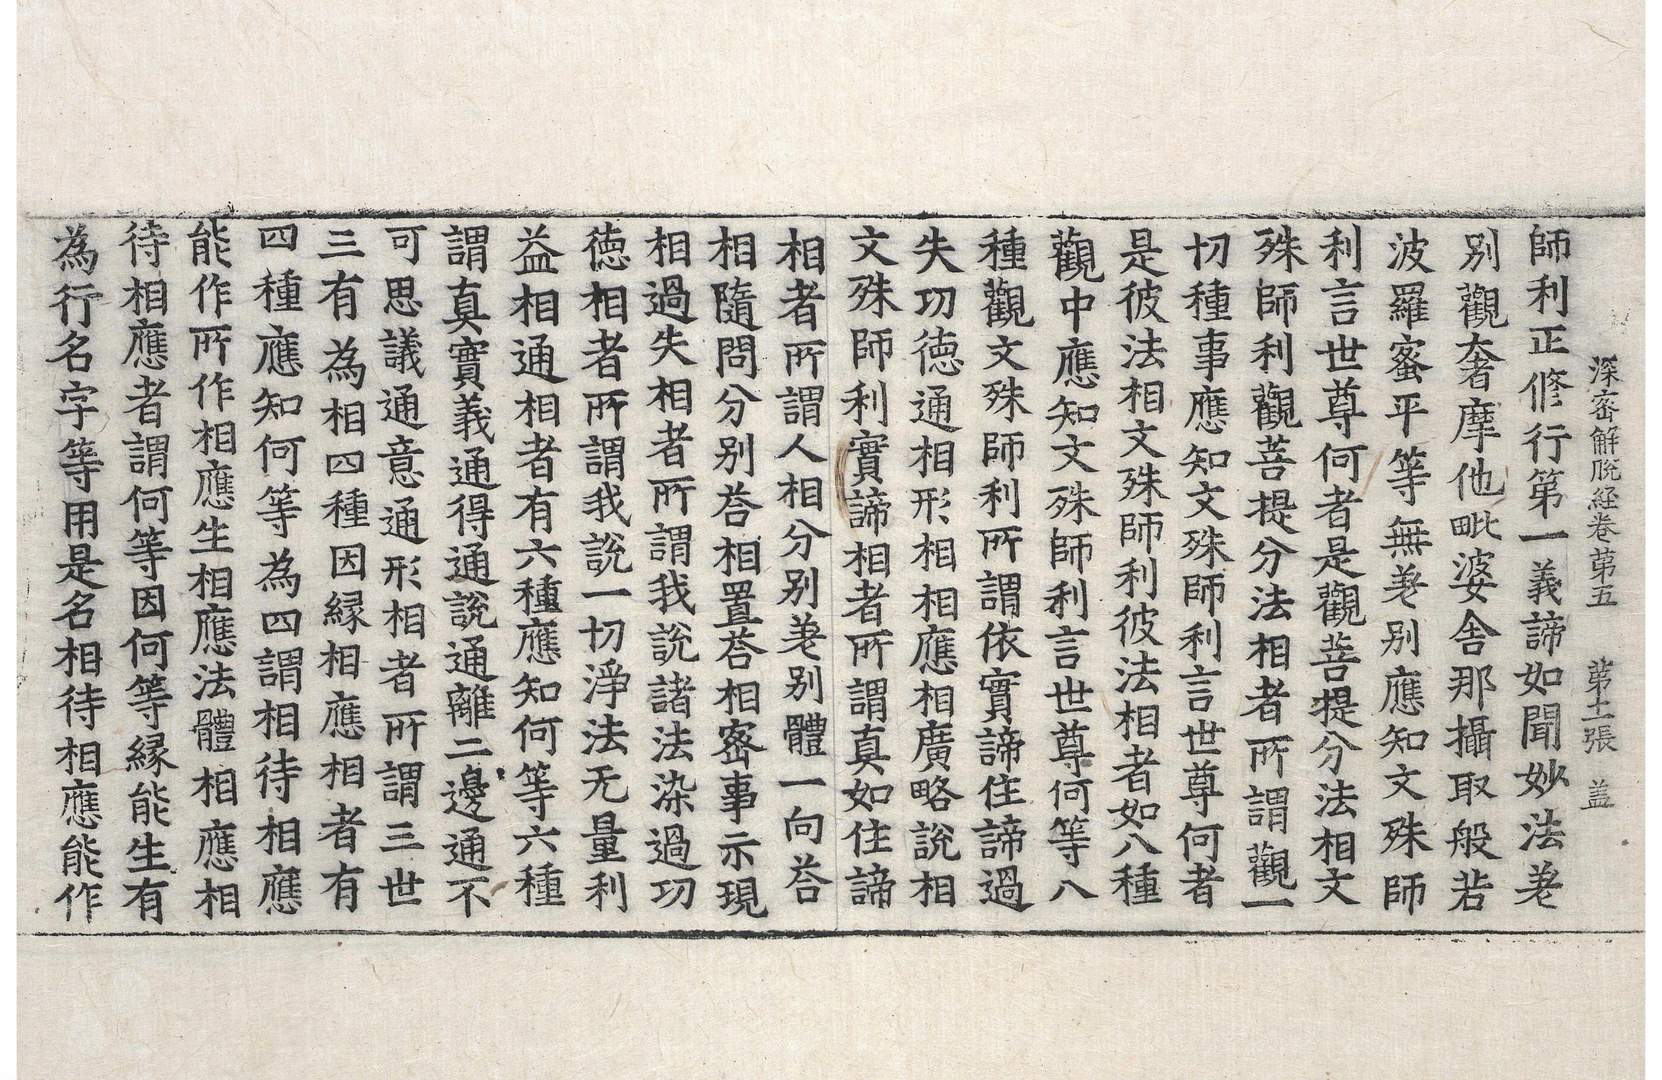 深密解脫經卷第五　第十二張　盖
師利正修行第一義諦如聞妙法差
別觀奢摩他毗婆舍那攝取般若
波羅蜜平等無差別應知文殊師
利言世尊何者是觀菩提分法相文
殊師利觀菩提分法相者所謂觀一
切種事應知文殊師利言世尊何者
是彼法相文殊師利彼法相者如八種
觀中應知文殊師利言世尊何等八
種觀文殊師利所謂依實諦住諦過
失功德通相形相相應相廣略說相
文殊師利實諦相者所謂真如住諦
相者所謂人相分別差別體一向荅
相隨問分別荅相置荅相密事示現
相過失相者所謂我說諸法染過功
德相者所謂我說一切淨法无量利
益相通相者有六種應知何等六種
謂真實義通得通說通離二邊通不
可思議通意通形相者所謂三世
三有為相四種因緣相應相者有
四種應知何等為四謂相待相應
能作所作相應生相應法體相應相
待相應者謂何等因何等緣能生有
為行名字等用是名相待相應能作